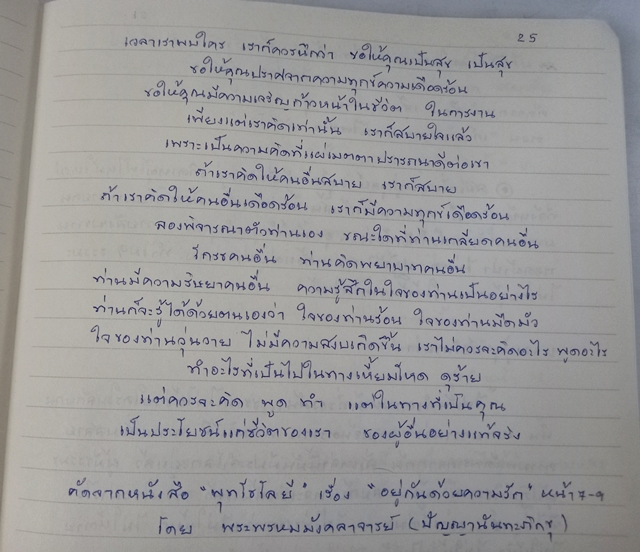 25
เวลาเราพบใคร เราก็ควรนึกว่า ขอให้คุณเป็นสุข เป็นสุข
ขอให้คุณปราศจากความทุกข์ความเดือดร้อน
ขอให้คุณมีความเจริญก้าวหน้าในชีวิต ในการงาน
เพียงแต่เราคิดเท่านั้น เราก็สบายใจแล้ว
เพราะเป็นความคิดที่แผ่เมตตาปรารถนาดีต่อเขา
ถ้าเราคิดให้คนอื่นสบาย เราก็สบาย
ถ้าเราคิดให้คนอื่นเดือดร้อน เราก็มีความทุกข์เดือดร้อน
ลองพิจารณาตัวท่านเอง ขณะใดที่ท่านเกลียดคนอื่น
โกรธคนอื่น ท่านคิดพยาบาทคนอื่น
ท่านมีความริษยาคนอื่น ความรู้สึกในใจของท่านเป็นอย่างไร
ท่านก็จะรู้ได้ด้วยตนเองว่า ใจของท่านร้อน ใจของท่านมืดมัว
ใจของท่านวุ่นวาย ไม่มีความสงบเกิดขึ้น เราไม่ควรจะคิดอะไร พูดอะไร
ทำอะไรที่เป็นไปในทางเหี้ยมโหด ดุร้าย
แต่ควรจะคิด พูด ทำ แต่ในทางที่เป็นคุณ
เป็นประโยชน์แก่ชีวิตของเรา ของผู้อื่นอย่างแท้จริง
คัดจากหนังสือ "พุทโธโลยี" เรื่อง "อยู่กันด้วยความรัก" หน้า 7-9
โดย พระพรหมมังคลาจารย์ (ปัญญานันทะภิกขุ)